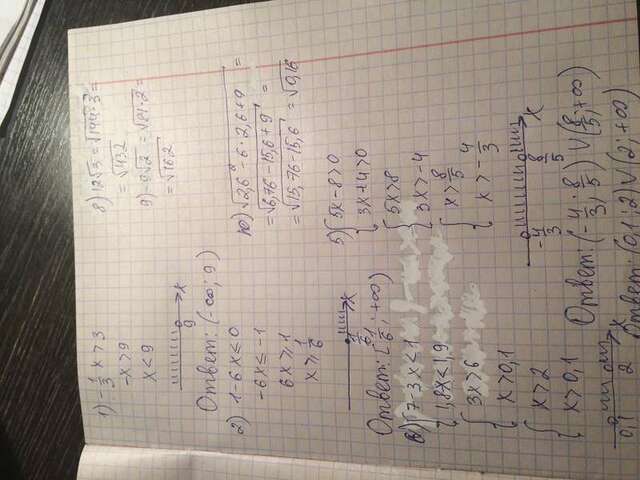 1) -1/3 x > 3
-x > 9
x < 9
9 x
Ответ: (-∞; 9)
2) 1-6x ≤ 0
-6x ≤ -1
6x ≥ 1
x ≥ 1/6
1/6 x
Ответ: [1/6; +∞)
6) { 7-3x < 1
1,8x < 1,9
{ 3x > 6
x > 0,1
{ x > 2
x > 0,1
0,1 2 x
Ответ: (0,1; 2) ∨ (2; +∞)
8) 12√3 = √144·3 =
= √432
9) -9√2 = √81·2 =
= √16,2
10) √2,6² - 6·2,6+9 =
= √6,76 - 15,6 + 9 =
= √15,76 - 15,6 = √0,16
5) { 5x - 8 > 0
3x + 4 > 0
{ 5x > 8
3x > -4
{ x > 8/5
x > -4/3
-4/3 8/5 x
Ответ: (-4/3; 8/5) ∨ (8/5; +∞)